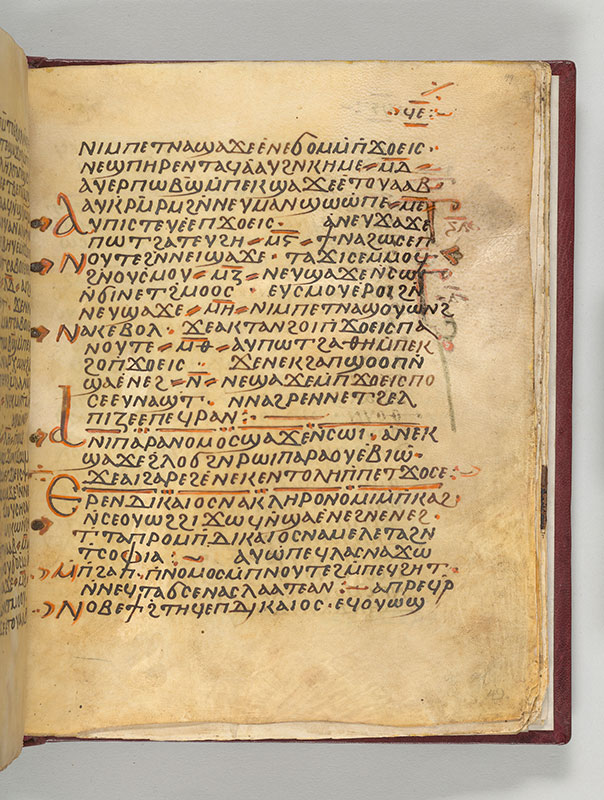 ϥⲉ
ⲛⲓⲙⲡⲉⲧⲛⲁϣⲁϫⲉⲉⲛⲉϭⲟⲙⲙ̄ⲡ̄ϫⲟⲉⲓⲥ·
ⲛⲉϣⲡⲏⲣⲉⲛⲧⲁϥⲁⲁⲩϩⲛⲕⲏⲙⲉ – ⲙⲇ –
ⲁⲩⲉⲣⲡⲱⲃϣⲙⲡⲉⲕϣⲁϫⲉⲉⲧⲟⲩⲁⲁⲃ
ⲁⲩⲕⲣⲙⲣⲙϩⲛⲛⲉⲩⲙⲁⲛϣⲱⲡⲉ – ⲙⲉ
ⲁⲩⲡⲓⲥⲧⲉⲩⲉⲉⲡϫⲟⲉⲓⲥ· ⲁⲛⲉⲩϫⲁϫⲉ
ⲡⲱⲧϩⲁⲧⲉⲩϩⲏ – ⲙⲋ – ϯⲛⲁϩⲱⲥⲉⲡ
ⲛⲟⲩⲧⲉϩⲛⲛⲉⲓϣⲁϫⲉ· ⲧⲁϫⲓⲥⲉⲙⲙⲟⲩ
ϩⲛⲟⲩⲥⲙⲟⲩ – ⲙⲍ – ⲛⲉⲩϣⲁϫⲉⲛⲥⲱⲓ̈
ⲛ̄ϭⲓⲛⲉⲧϩⲙⲟⲟⲥ· ⲉⲩⲥⲙⲟⲩⲉⲣⲟⲓϩⲛ̄
ⲛⲉⲩϣⲁϫⲉ – ⲙⲏ – ⲛⲓⲙⲡⲉⲧⲛⲁϣⲟⲩⲱⲛϩ
ⲛⲁⲕⲉⲃⲟⲗ· ϫⲉⲁⲕⲧⲁⲛϩⲟⲓⲡϫⲟⲉⲓⲥⲡⲁ
ⲛⲟⲩⲧⲉ – ⲙⲑ – ⲁⲩⲡⲱⲧϩⲁⲑⲏⲙⲡⲉⲕ
ϩⲟⲡϫⲟⲉⲓⲥ· ϫⲉⲛⲉⲕϩⲁⲡϣⲟⲟⲡⲛ̄
ϣⲁⲉⲛⲉϩ – ⲛ – ⲛⲉϣⲁϫⲉⲙⲡϫⲟⲉⲓⲥⲡⲟ
ⲥⲉⲉⲩⲛⲁϣⲧ· ⲛⲛⲁϩⲣⲉⲛⲛⲉⲧϩⲉⲗ
ⲡⲓⲍⲉⲉⲡⲉϥⲣⲁⲛ:
ⲁⲛⲓⲡⲁⲣⲁⲛⲟⲙⲟⲥϣⲁϫⲉⲛⲥⲱⲓ· ⲁⲛⲉⲕ
ϣⲁϫⲉϩⲗⲟϭϩⲛⲣⲱⲓⲡⲁⲣⲁⲟⲩⲉⲃⲓⲱ·
ϫⲉⲁⲓϩⲁⲣⲉϩⲉⲛⲉⲕⲉⲛⲧⲟⲗⲏⲡⲡⲉⲧϫⲟⲥⲉ:
ⲉⲣⲉⲛⲇⲓⲕⲁⲓⲟⲥⲛⲁⲕⲗⲏⲣⲟⲛⲟⲙⲓⲙⲡⲕⲁϩ
ⲛ̄ⲥⲉⲟⲩⲱϩϩⲓϫⲱϥⲛ̄ϣⲁⲉⲛⲉϩⲛⲉⲛⲉϩ·
ⲧ·ⲧⲁⲡⲣⲟⲙⲡ̄ⲇⲓⲕⲁⲓⲟⲥⲛⲁⲙⲉⲗⲉⲧⲁϩⲛ
ⲧ̄ⲥⲟⲫⲓⲁ:– ⲁⲩⲱⲡⲉϥⲗⲁⲥⲛⲁϫⲱ
ⲙⲡϩⲁⲡ·ⲡⲛⲟⲙⲟⲥⲙⲡⲛⲟⲩⲧⲉϩⲙⲡⲉϥϩⲏⲧ·
ⲛⲛⲉϥⲧⲁϭⲥⲉⲛⲁⲥⲗⲁⲁⲧⲉⲁⲛ:– ⲁⲡⲣⲉϥⲣ
ⲛⲟⲃⲉϯϩⲧⲏϥⲉⲡⲇⲓⲕⲁⲓⲟⲥ·ⲉϥⲟⲩⲱϣ